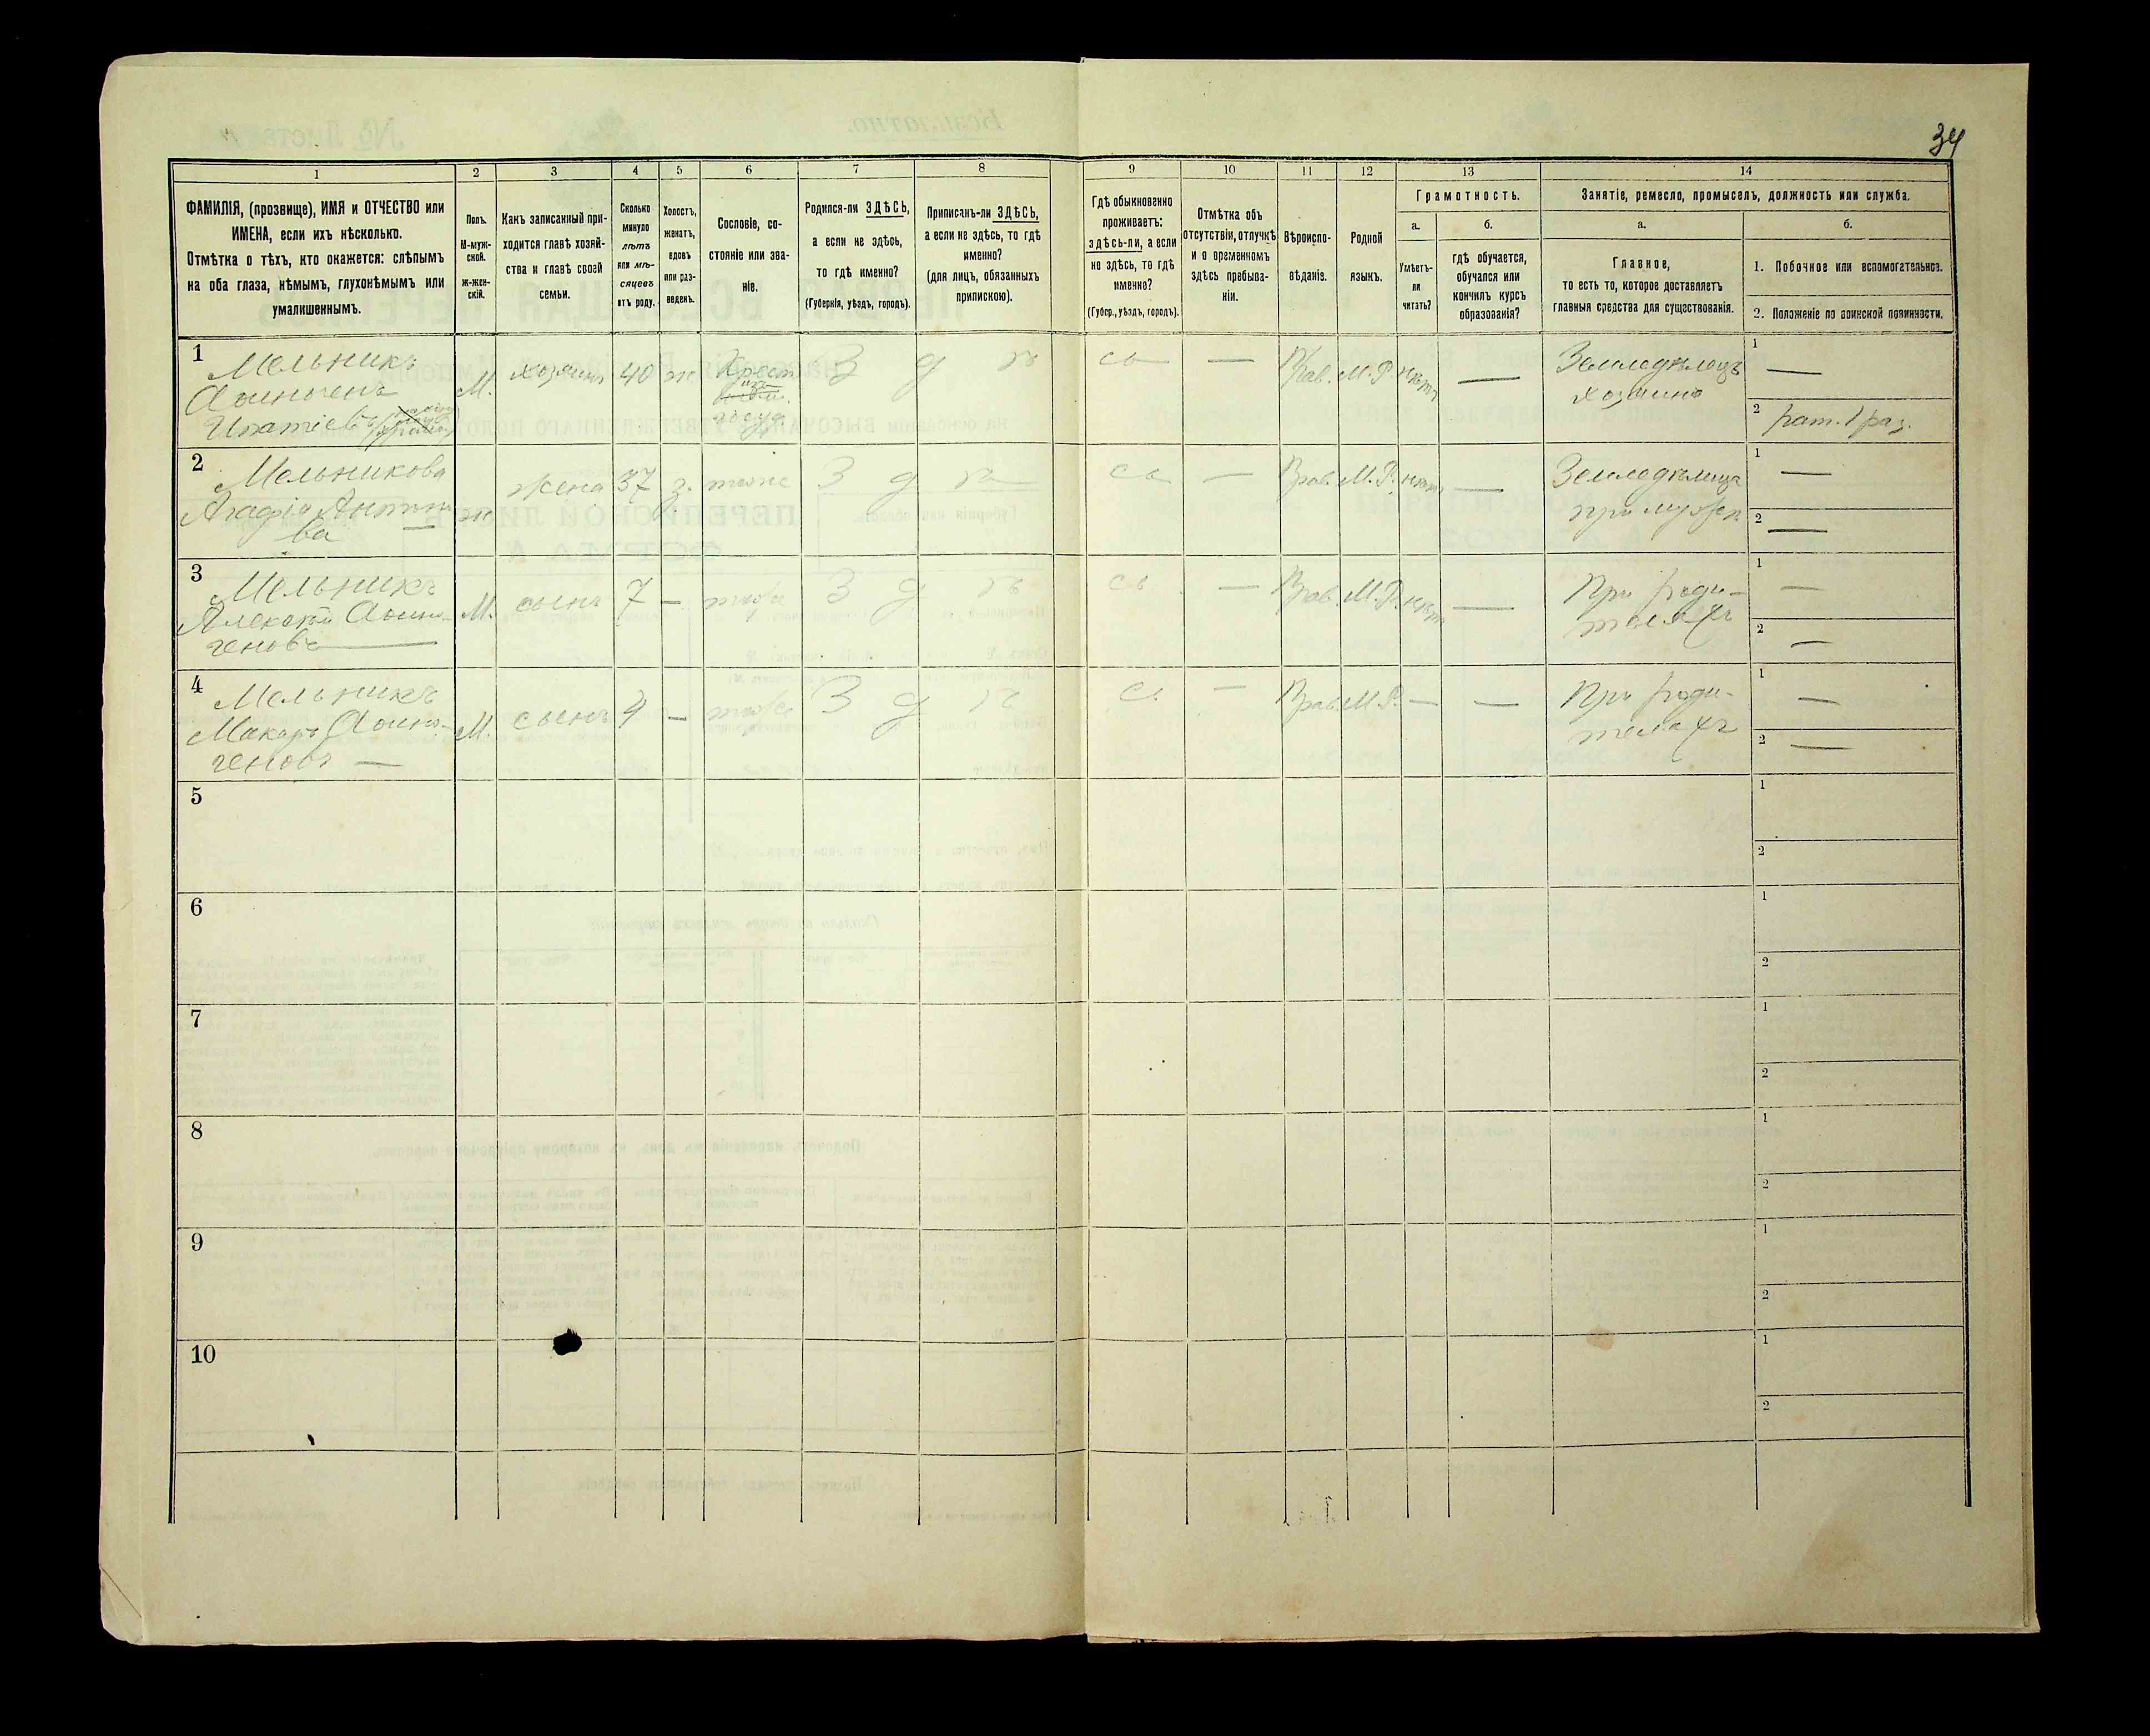 34
1 2 3 4 5 6 7 8 9 10 11 12 13 14
ФАМИЛІЯ, (прозвище), ИМЯ и ОТЧЕСТВО или
ИМЕНА, если ихъ нѣсколько.
Отмѣтка о тѣхъ, кто окажется: слѣпымъ
на оба глаза, нѣмымъ, глухонѣмымъ или
умалишеннымъ.
Полъ.
М-муж-
ской.
ж-жен-
скій.
Какъ записанный при-
ходится главѣ хозяй-
ства и главѣ своей
семьи.
Сколько
минуло
лѣтъ
или мѣ-
сяцевъ
отъ роду.
Холостъ,
женатъ,
вдовъ
или раз-
веденъ.
Сословіе, со-
стояніе или зва-
ніе.
Родился-ли ЗДѢСЬ,
а если не здѣсь,
то гдѣ именно?
(Губернія, уѣздъ, городъ).
Приписанъ-ли ЗДѢСЬ,
а если не здѣсь, то гдѣ
именно?
(для лицъ, обязанныхъ
припискою).
Гдѣ обыкновенно
проживаетъ:
здѣсь-ли, а если
не здѣсь, то гдѣ
именно?
(Губер., уѣздъ, городъ).
Отмѣтка объ
отсутствіи, отлучкѣ
и о временномъ
здѣсь пребыва-
ніи.
Вѣроиспо-
вѣданіе.
Родной
языкъ.
Грамотность.
а.
Умѣетъ-
ли
читать?
б.
гдѣ обучается,
обучался или
кончилъ курсъ
образованія?
Занятіе, ремесло, промыселъ, должность или служба.
а.
Главное,
то есть то, которое доставляетъ
главныя средства для существованія.
б.
1. Побочное или вспомогательное.
2. Положеніе по воинской повинности.
1
Мельникъ
Ипатіевъ
М.
хозяинъ
40
ж
Крест
изъ
госуд
З д ѣ сь
—
Прав.
М.Р.
нѣтъ
—
Земледѣлецъ
хозяинъ
1 —
2 рат. 1 раз.
2
Мельникова
Агафія Антоно
ва
ж
жена
37
з.
тоже
З д ѣ сь
—
Прав.
М.Р.
нѣтъ
—
Земледѣлица
при мужѣ
1 —
2 —
3
Мельникъ
Алексѣй
геновъ
М.
сынъ
7
—
тоже
З д ѣ сь
—
Прав.
М.Р.
нѣтъ
—
При роди-
теляхъ
1 —
2 —
4
Мельникъ
Макаръ
геновъ —
М.
сынъ
4
—
тоже
З д ѣ сь
—
Прав.
М.Р.
—
—
При роди-
теляхъ
1 —
2 —
5
1
2
6
1
2
7
1
2
8
1
2
9
1
2
10
1
2